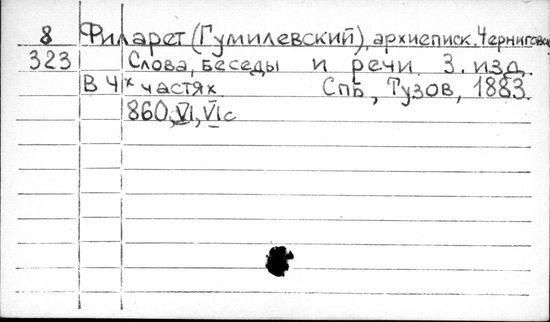 8 Филарет (Гумилевский), архиеписк. Черниговск
323 Слова, беседы и речи. 3. изд.
В 4х частях СПБ, Тузов, 1883.
860, VI, VI с